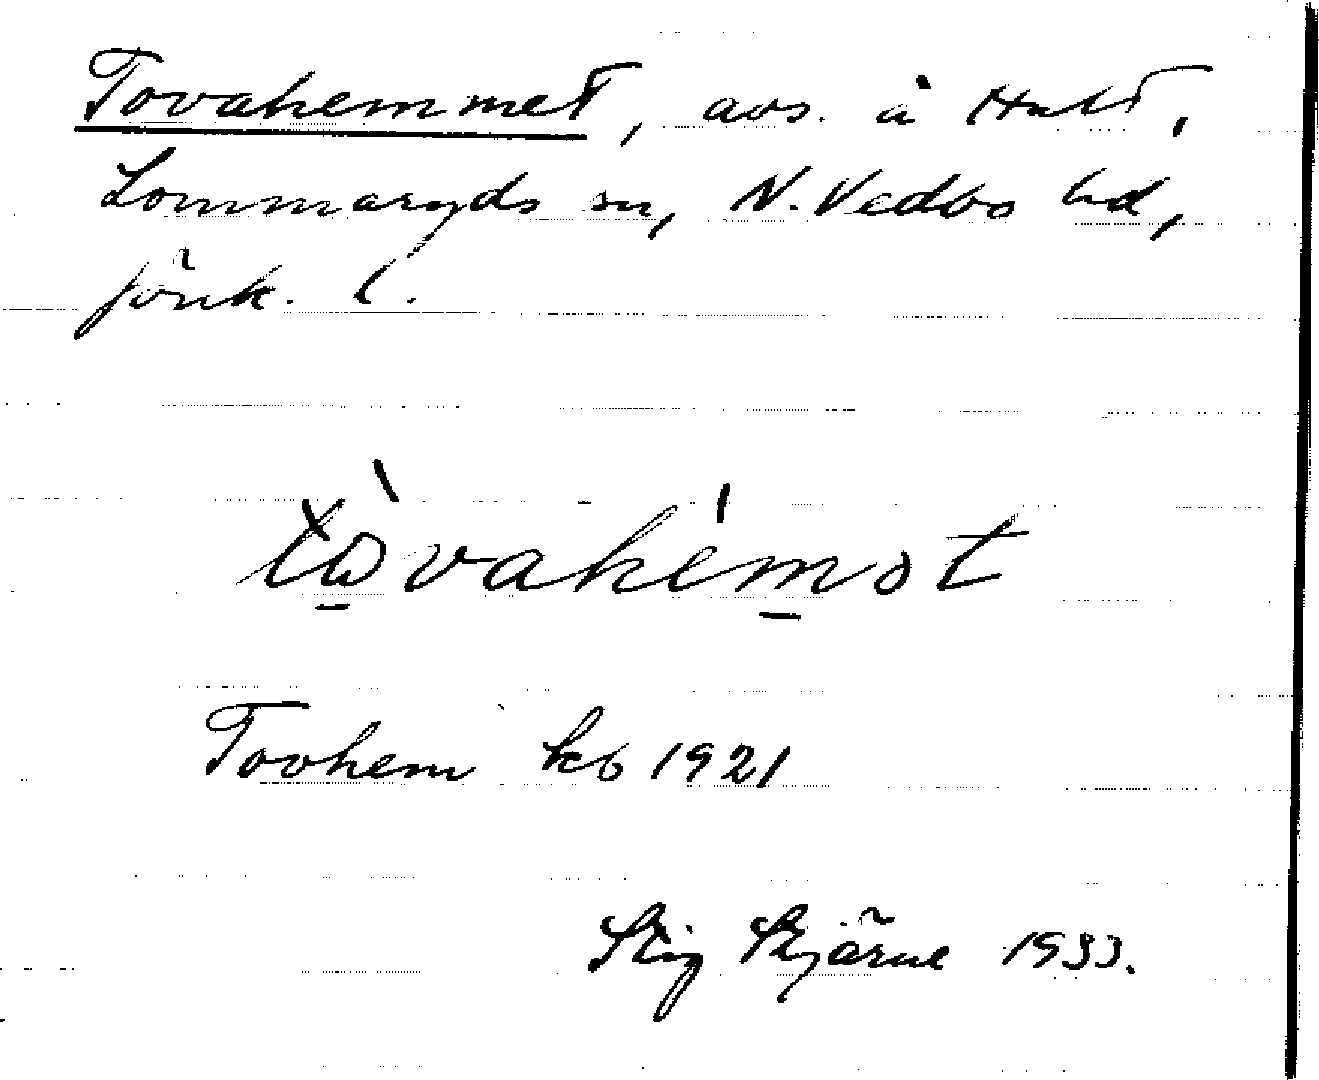 Tovahemmet, avs. å Hult,
Lommaryds sn, N. Vedbo hd,
Jönk. l.
tòvahémət
Tovhem kb 1921
Stig Stjärne 1933.